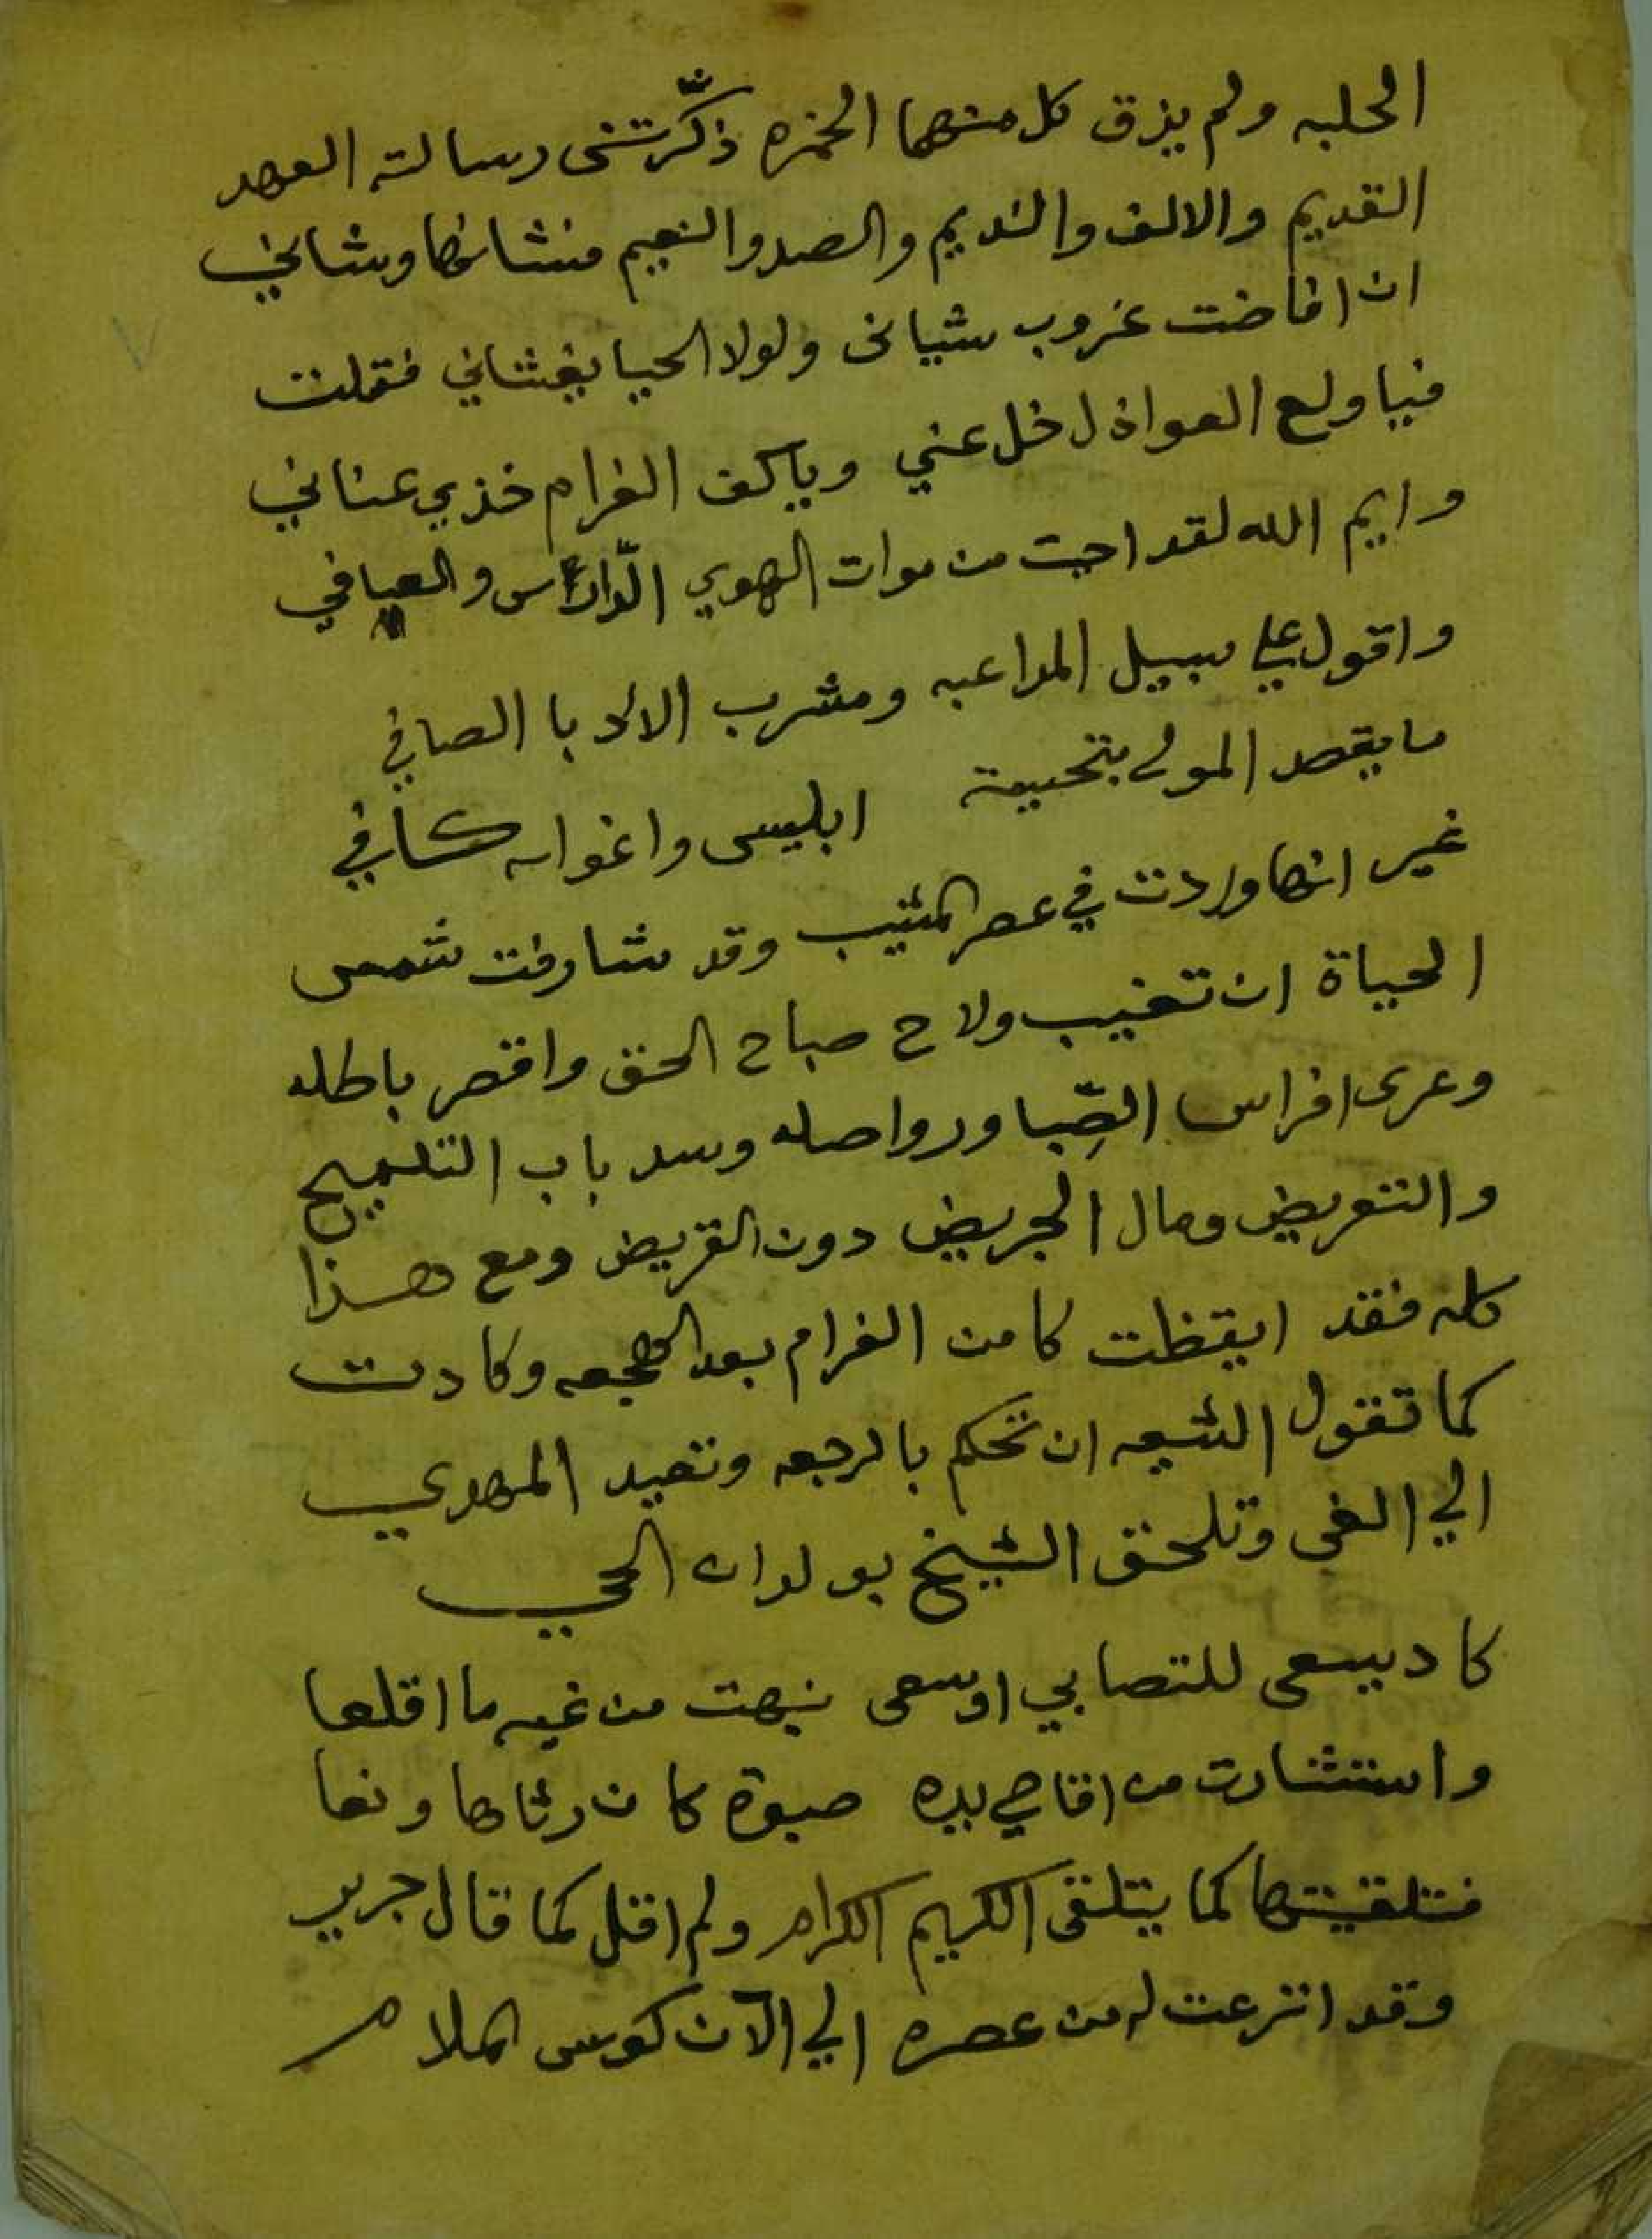 الحلبه ولم يزق كل منهما الخمره ذكّرتنى رسالته العهد
القديم والالف والنديم والصد والنعيم فنشانها وشاني
ان افاضت غروب شيانى ولولا الحيا يغشاني فقلت
فيا ولع العواذل خل عني وياكف الغرام خذي عناني
وايم الله لقد احيت من موات الهوي الدارس والعافي
واقول علي سبيل المداعبه ومشرب الادبا الصافي
ما يقصد المولى بتحييته ابليس واغواه كافي
غير انها وردت في عصر المشيب وقد شارفت شمس
الحياة ان تغيب ولاح صباح الحق واقصر باطله
وعرى افراس الصِّبا ورواصله وسد باب التلميح
والتعريض وحال الجريض دون القريض ومع هذا
كله فقد ايقظت كامن الغرام بعد الهجعه وكادت
كما تقول الشيعه ان تحكم بالرجعه وتعيد المهدي
الي الغى وتلحق الشيخ بولدان الحي
كاد يسعى للتصابي اوسعى نبهت من غيه ما اقلعا
واستثارت من اقاصي بيده صبوة كان رثاها ونعا
فتلقيتها كما يتلقى الكريم الكرام ولم اقل كما قال جرير
وقد انزعت له من عصره الي الآن كوس الملام